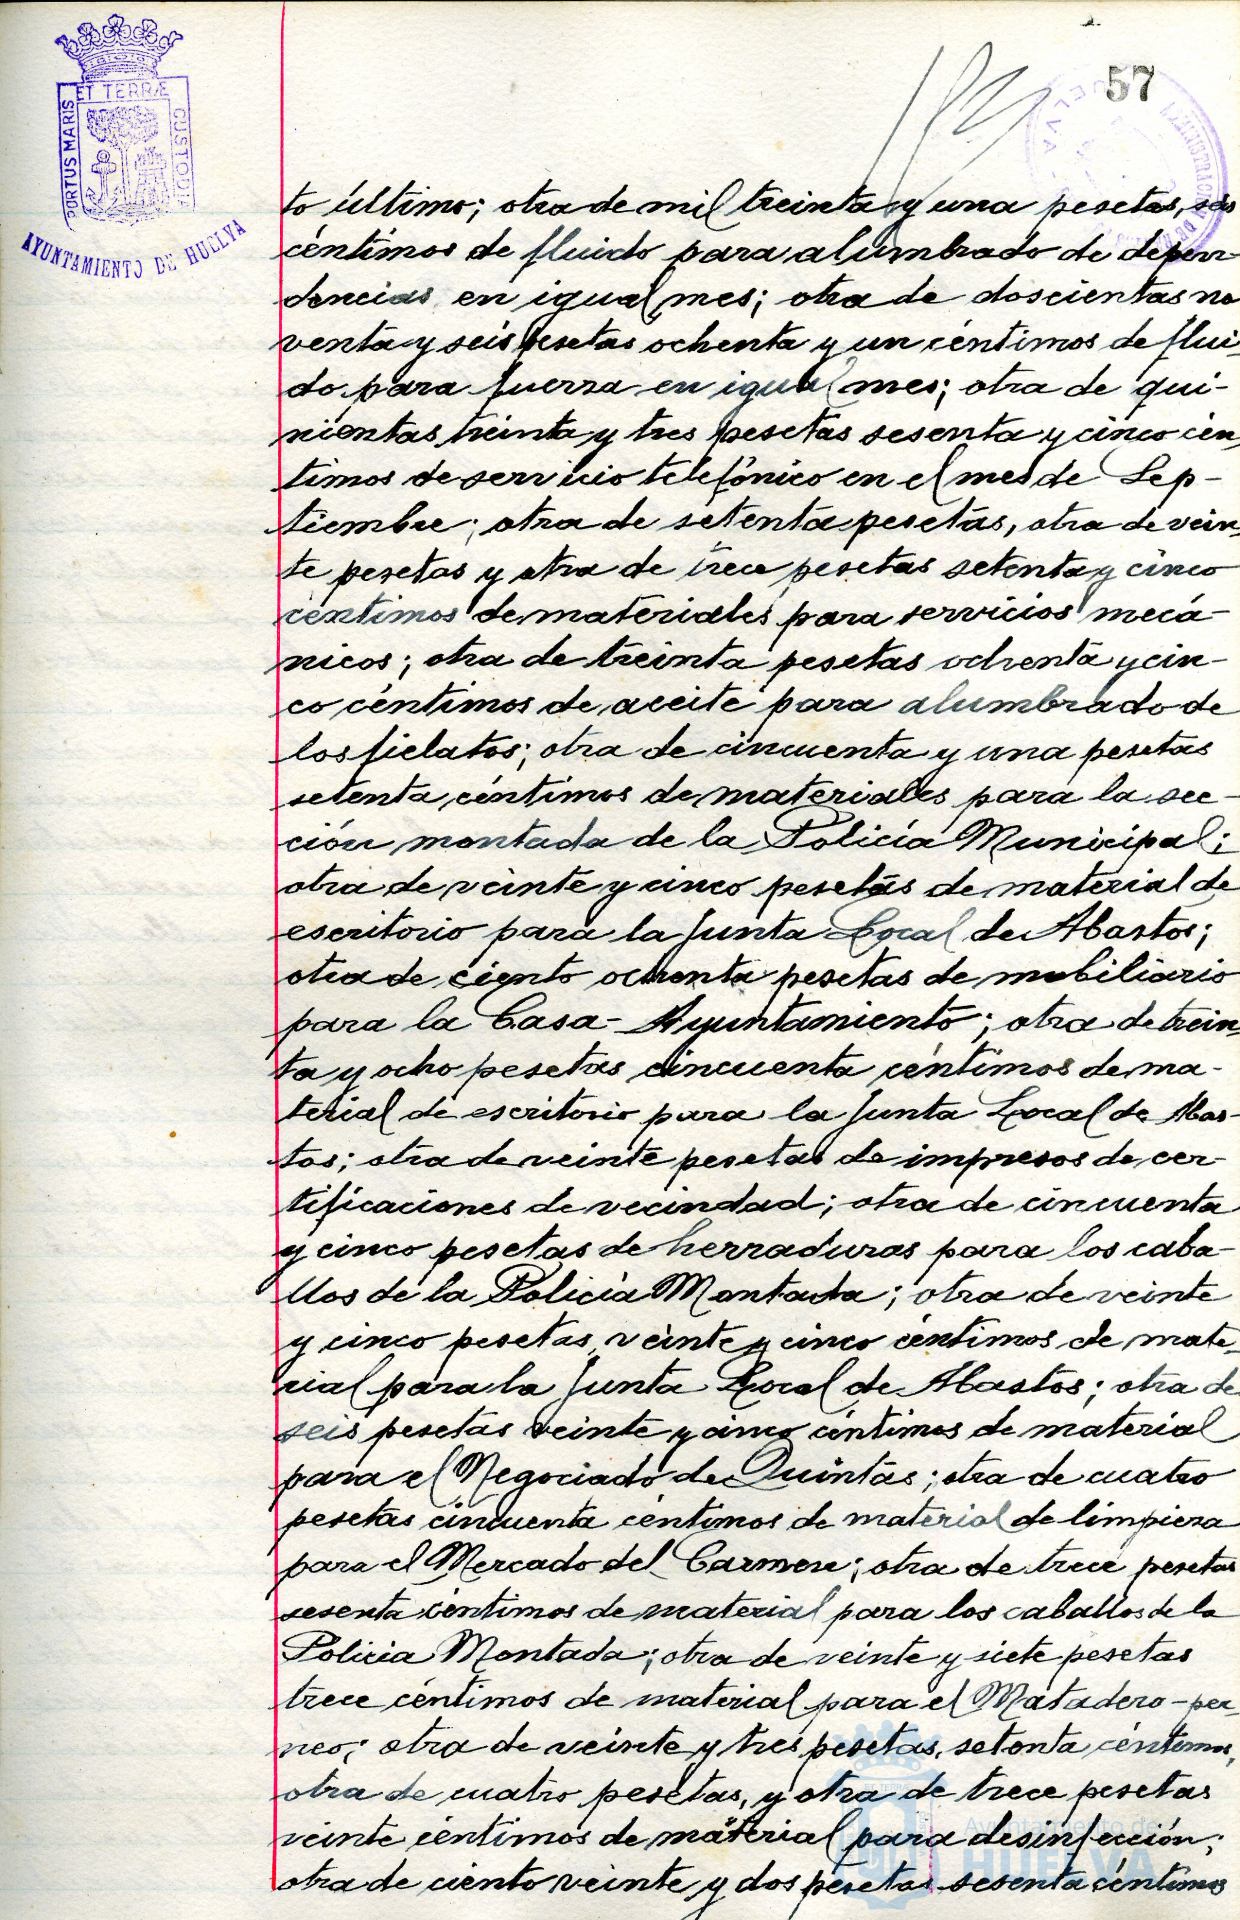 57
PORTUS MARIS
ET TERRÆ
CUSTODIA
AYUNTAMIENTO DE HUELVA
to último; otra de mil treinta y una pesetas, seis
céntimos de fluido para alumbrado de depen-
dencias en igual mes; otra de doscientas no
venta y seis pesetas ochenta y un céntimos de flui-
do para fuerza en igual mes; otra de qui-
nientas treinta y tres pesetas sesenta y cinco cén-
timos de servicio telefónico en el mes de Sep-
tiembre; otra de setenta pesetas, otra de vein-
te pesetas y otra de trece pesetas setenta y cinco
céntimos de materiales para servicios mecá-
nicos; otra de treinta pesetas ochenta y cin-
co céntimos de aceite para alumbrado de
los fielatos; otra de cincuenta y una pesetas
setenta céntimos de materiales para la sec-
ción montada de la Policía Municipal;
otra de veinte y cinco pesetas de material de
escritorio para la Junta Local de Abastos;
otra de ciento ochenta pesetas de mobiliario
para la Casa-Ayuntamiento; otra de trein-
ta y ocho pesetas cincuenta céntimos de ma-
terial de escritorio para la Junta Local de Abas-
tos; otra de veinte pesetas de impresos de cer-
tificaciones de vecindad; otra de cincuenta
y cinco pesetas de herraduras para los caba-
llos de la Policía Montada; otra de veinte
y cinco pesetas, veinte y cinco céntimos de mate-
rial para la Junta Local de Abastos; otra de
seis pesetas veinte y cinco céntimos de material
para el Negociado de Quintas; otra de cuatro
pesetas cincuenta céntimos de material de limpieza
para el Mercado del Carmen; otra de trece pesetas
sesenta céntimos de material para los caballos de la
Policía Montada; otra de veinte y siete pesetas
trece céntimos de material para el Matadero-per-
neo; otra de veinte y tres pesetas, setenta céntimos,
otra de cuatro pesetas, y otra de trece pesetas
veinte céntimos de material para desinfección;
otra de ciento veinte y dos pesetas sesenta céntimos
Ayuntamiento de
HUELVA